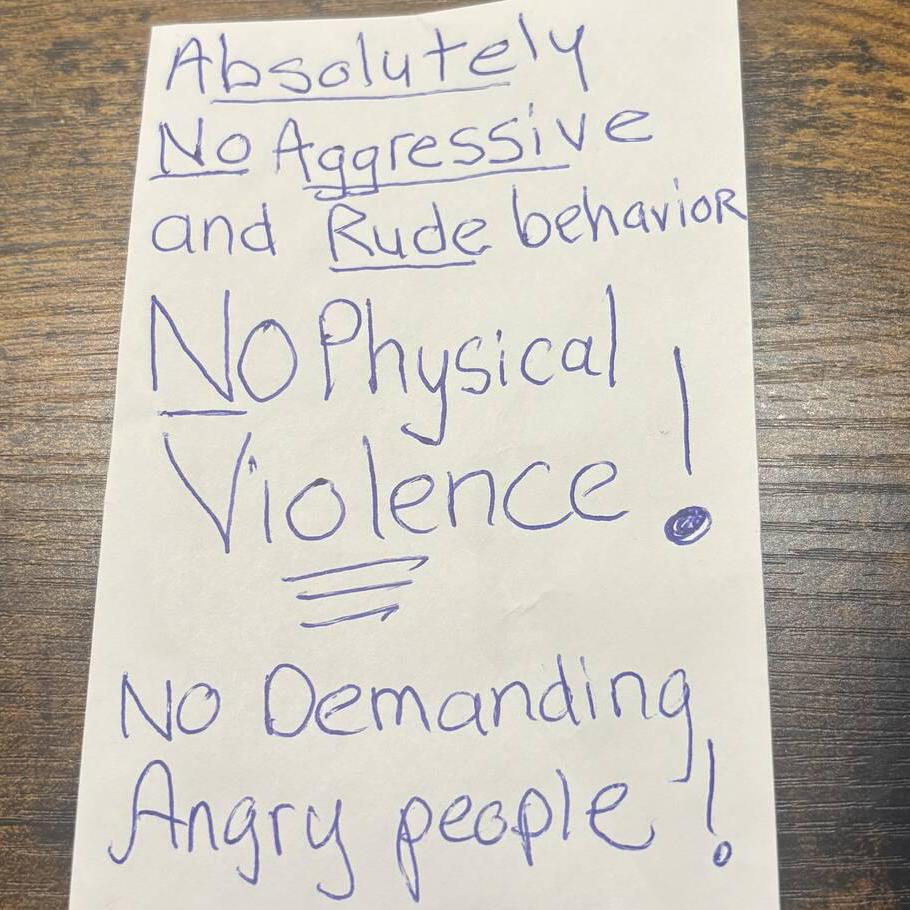 Absolutely
No Aggressive
and Rude behavior
No Physical
Violence!
No Demanding
Angry people!